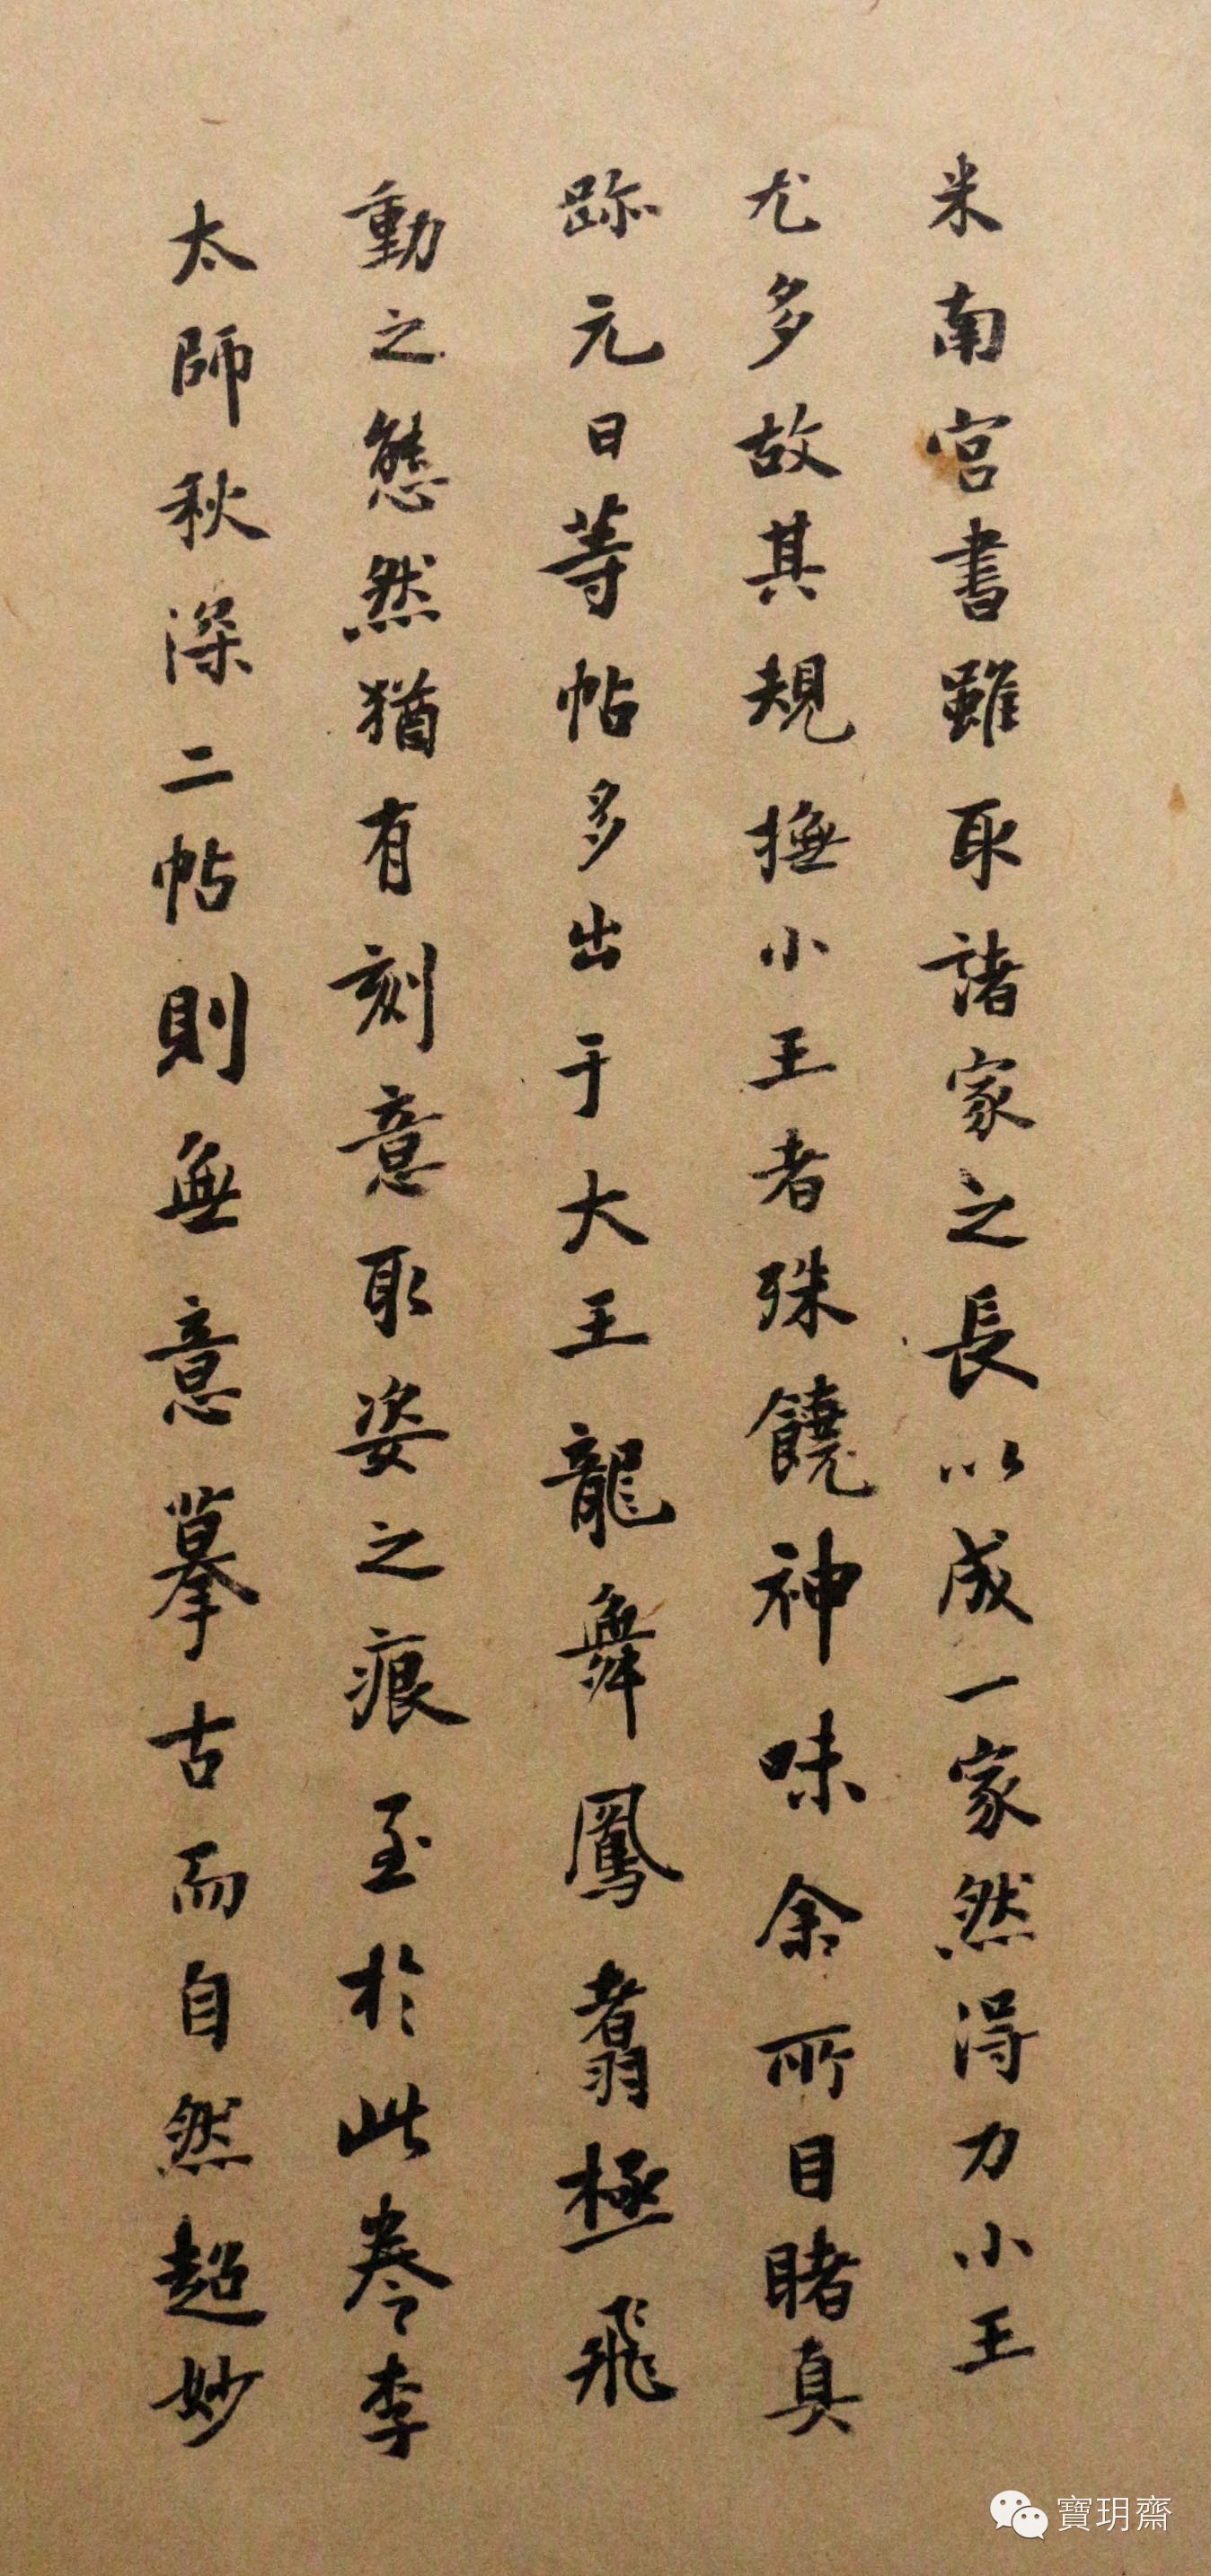 米南宫書雖取諸家之長以成一家然得力小王
尤多故其規撫小王者殊饒神味余所目睹真
跡元日等帖多出于大王龍舞鳳翥極飛
動之態然猶有刻意取姿之痕至於此卷李
太師秋深二帖則無意摹古而自然超妙
寶玥齋